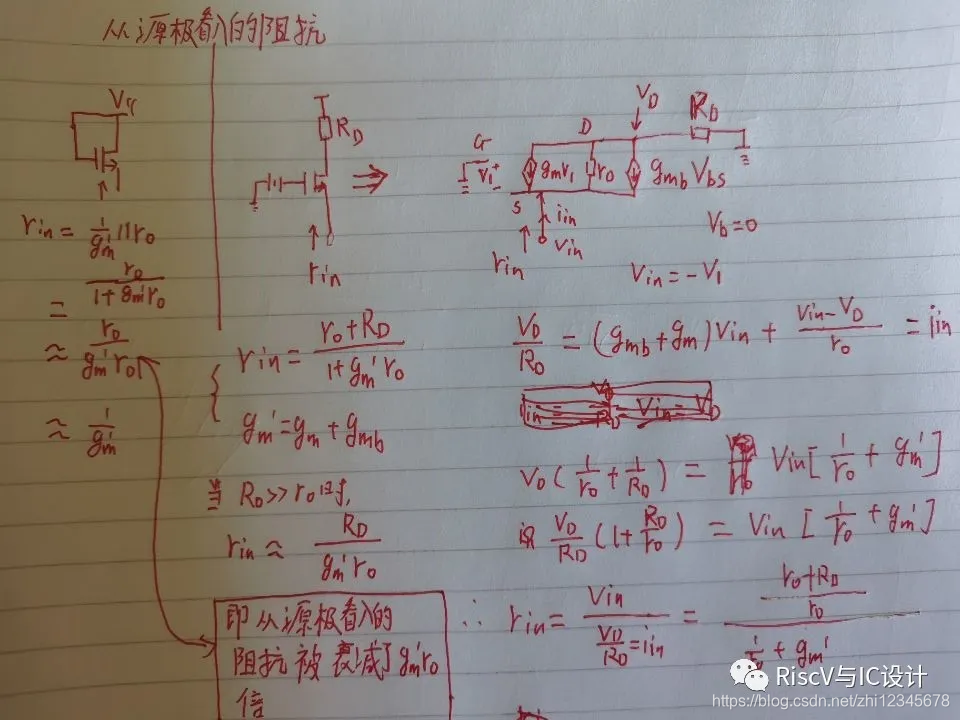 从源极看入的的阻抗
V1
rin = 1/gm' // ro
= ro/(1+gm'ro)
≈ ro/(gm'ro)
≈ 1/gm'
RD
rin
rin = (ro+RD)/(1+gm'ro)
gm' = gm + gmb
当 RD >> ro 时,
rin ≈ RD/(gm'ro)
即从源极看入的
阻抗被衰减了gm'ro
倍
VD
G D RD
V1 + - gmv1 ro gmb Vbs
S iin
Vin
rin
Vb = 0
Vin = -V1
VD/RD = (gmb+gm)Vin + (Vin-VD)/ro = iin
VD(1/ro + 1/RD) = Vin[1/ro + gm']
VD/RD(1+RD/ro) = Vin[1/ro + gm']
∴ rin = Vin/(VD/RD = iin) = ((ro+RD)/ro)/(1/ro + gm')
RiscV与IC设计
https://blog.csdn.net/zhi12345678